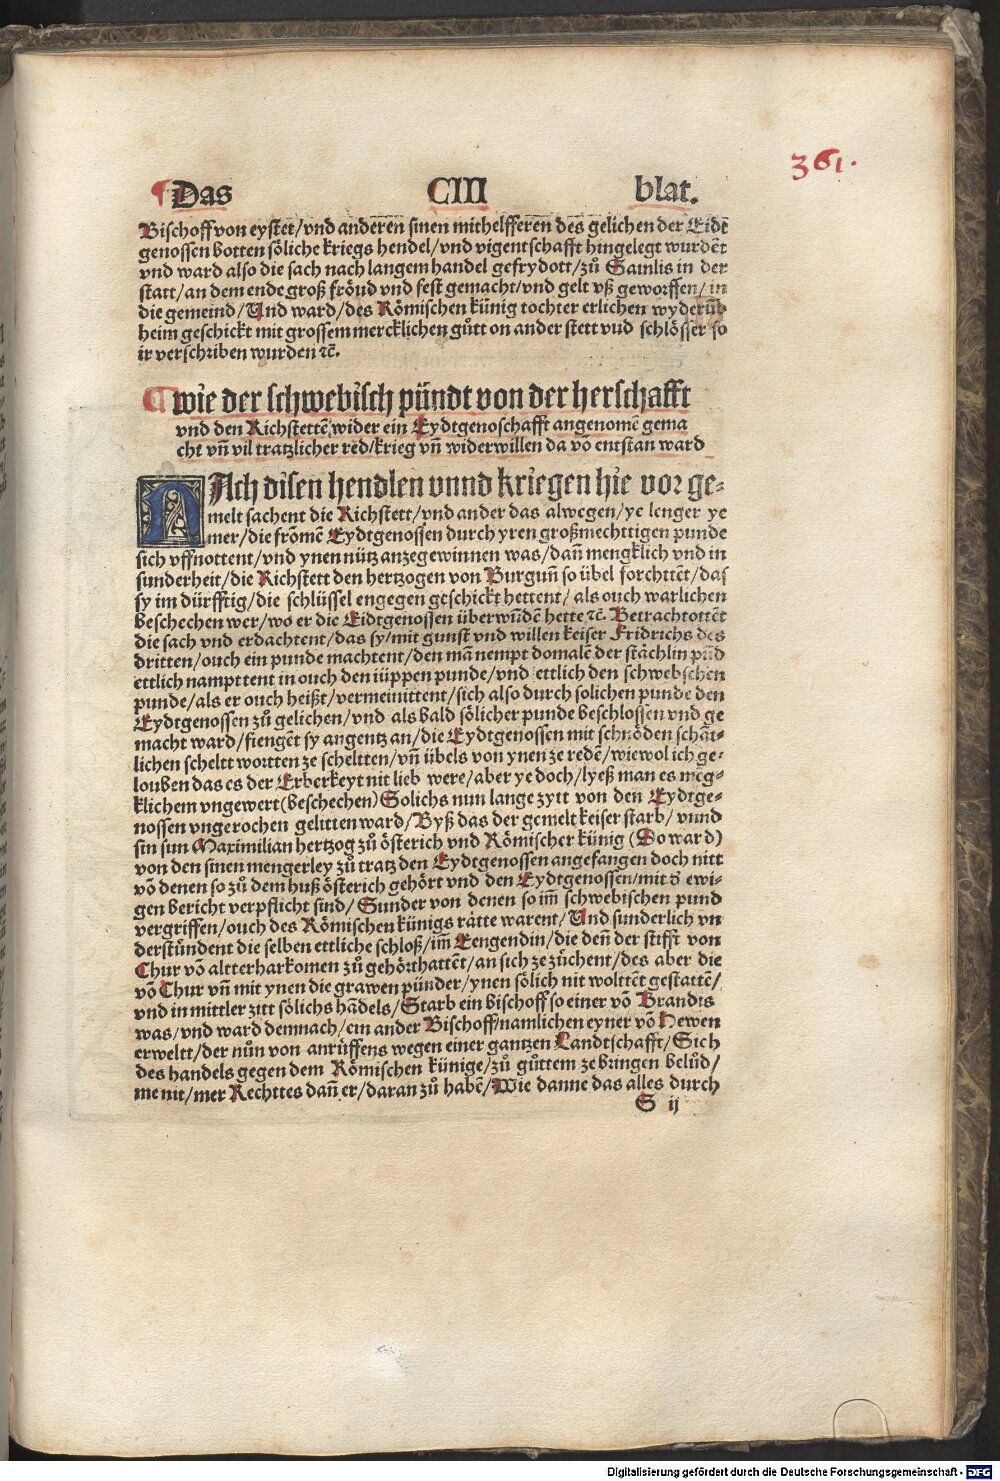 361.
¶Das CIII blat.
Bischoff von eystet/vnd anderen sinen mithelfferen des gelichen der Eidt
genossen botten söliche kriegs hendel/vnd vigentschafft hingelegt wurdẽt
vnd ward also die sach nach langem handel gefrydott/zů Samlis in der
statt/an dem ende groß fröud vnd fest gemacht/vnd gelt vß geworffen/in
die gemeind/Und ward/des Römischen künig tochter erlichen wyderůb
heim geschickt mit grossem mercklichen gůtt on ander stett vnd schlösser so
ir verschriben wurden ꝛc̃.
¶ wie der schwebisch pündt von der herschafft
vnd den Richstettẽ wider ein Eydtgenoschafft angenomẽ gema
cht vñ vil tratzlicher red/krieg vñ widerwillen da võ entstan ward
NAch disen hendlen vnnd kriegen hie vor ge⸗
melt sachent die Richstett/vnd ander das alwegen/ye lenger ye
mer/die frõmẽ Eydtgenossen durch yren großmechttigen punde
sich vffnottent/vnd ynen nütz anzegewinnen was/dañ mengklich vnd in
sunderheit/die Richstett den hertzogen von Burguñ so übel forchttẽt/das
sy im dürfftig/die schlüssel engegen geschickt hettent/als ouch warlichen
beschechen wer/wo er die Eidtgenossen überwũdẽ hette ꝛc̃. Betrachtottẽt
die sach vnd erdachtent/das sy/mit gunst vnd willen keiser Fridrichs des
dritten/ouch ein punde machtent/den mã nempt domalẽ der stächlin pũd
ettlich nampttent in ouch den iüppen punde/vnd ettlich den schwebschen
punde/als er ouch heißt/vermeinittent/sich also durch solichen punde den
Eydtgenossen zů gelichen/vnd als bald sölicher punde beschlossen vnd ge
macht ward/fiengẽt sy angentz an/die Eydtgenossen mit schnöden schãt⸗
lichen scheltt wortten ze scheltten/vñ übels von ynen ze redẽ/wiewol ich ge⸗
louben das es der Erberkeyt nit lieb were/aber ye doch/lyeß man es mẽg⸗
klichem vngewert(beschechen)Solichs nun lange zytt von den Eydtge⸗
nossen vngerochen gelitten ward/Byß das der gemelt keiser starb/vnnd
sin sun Maximilian hertzog zů österich vnd Römischer künig (Do ward)
von den sinen mengerley zů tratz den Eydtgenossen angefangen doch nitt
võ denen so zů dem huß österich gehört vnd den Eydtgenossen/mit ð ewi⸗
gen bericht verpflicht sind/Sunder von denen so im̃ schwebischen pund
vergriffen/ouch des Römischen künigs rätte warent/Und sunderlich vn
derstůndent die selben ettliche schloß/im̃ Eengendin/die deñ der stifft von
Chur võ altterharkomen zů gehörthattẽt/an sich ze zůchent/des aber die
võ Chur vñ mit ynen die grawen pünder/ynen sölich nit wolttẽt gestattẽ/
vnd in mittler zitt sölichs hãdels/Starb ein bischoff so einer võ Brandis
was/vnd ward demnach/ein ander Bischoff/namlichen eyner võ Hewen
erweltt/der nůn von anrüffens wegen einer gantzen Landtschafft/Sich
des handels gegen dem Römischen künige/zů güttem ze bringen belůd/
me nit/mer Rechttes dañ er/daran zů habẽ/Wie danne das alles durch
S ij
Digitalisierung gefördert durch die Deutsche Forschungsgemeinschaft - DFG